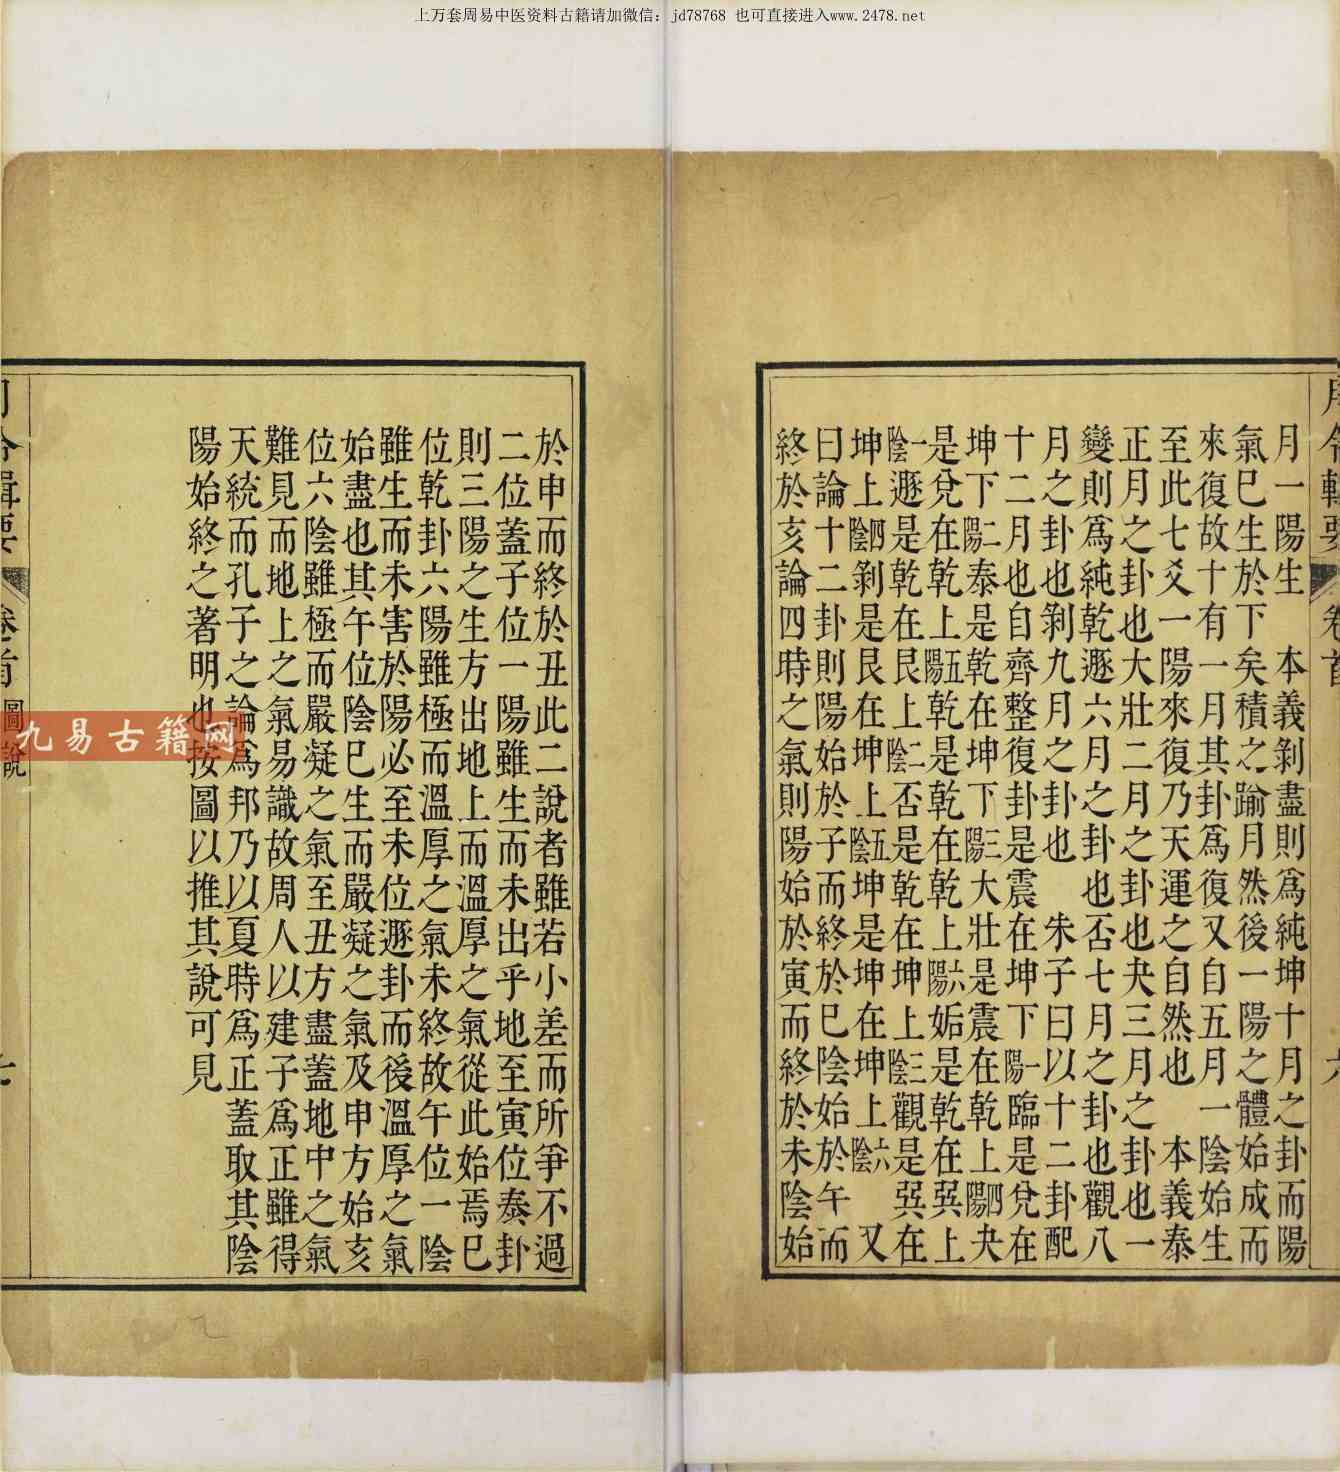 上万套周易中医资料古籍请加微信：jd78768 也可直接进入www.2478.net
月一陽生　本義剝盡則爲純坤十月之卦而陽
氣巳生於下矣積之踰月然後一陽之體始成而
來復故十有一月其卦爲復又自五月一陰始生
至此七爻一陽來復乃天運之自然也　本義泰
正月之卦也大壯二月之卦也夬三月之卦也一
變則爲純乾遯六月之卦也否七月之卦也觀八
月之卦也剝九月之卦也　朱子曰以十二卦配
十二月也自齊整復卦是震在坤下陽一臨是兌在
坤下陽二泰是乾在坤下陽三大壯是震在乾上陽四夬
是兌在乾上陽五乾是乾在乾上陽六姤是乾在巽上
陰一遯是乾在艮上陰二否是乾在坤上陰三觀是巽在
坤上陰四剝是艮在坤上陰五坤是坤在坤上陰六　又
曰論十二卦則陽始於子而終於巳陰始於午而
終於亥論四時之氣則陽始於寅而終於未陰始
於申而終於丑此二說者雖若小差而所爭不過
二位蓋子位一陽雖生而未出乎地至寅位泰卦
則三陽之生方出地上而溫厚之氣從此始焉巳
位乾卦六陽雖極而溫厚之氣未終故午位一陰
雖生而未害於陽必至未位遯卦而後溫厚之氣
始盡也其午位陰巳生而嚴凝之氣及申方始亥
位六陰雖極而嚴凝之氣至丑方盡蓋地中之氣
難見而地上之氣易識故周人以建子爲正雖得
天統而孔子之論爲邦乃以夏時爲正蓋取其陰
陽始終之著明也按圖以推其說可見
卷首
圖說
九易古籍网